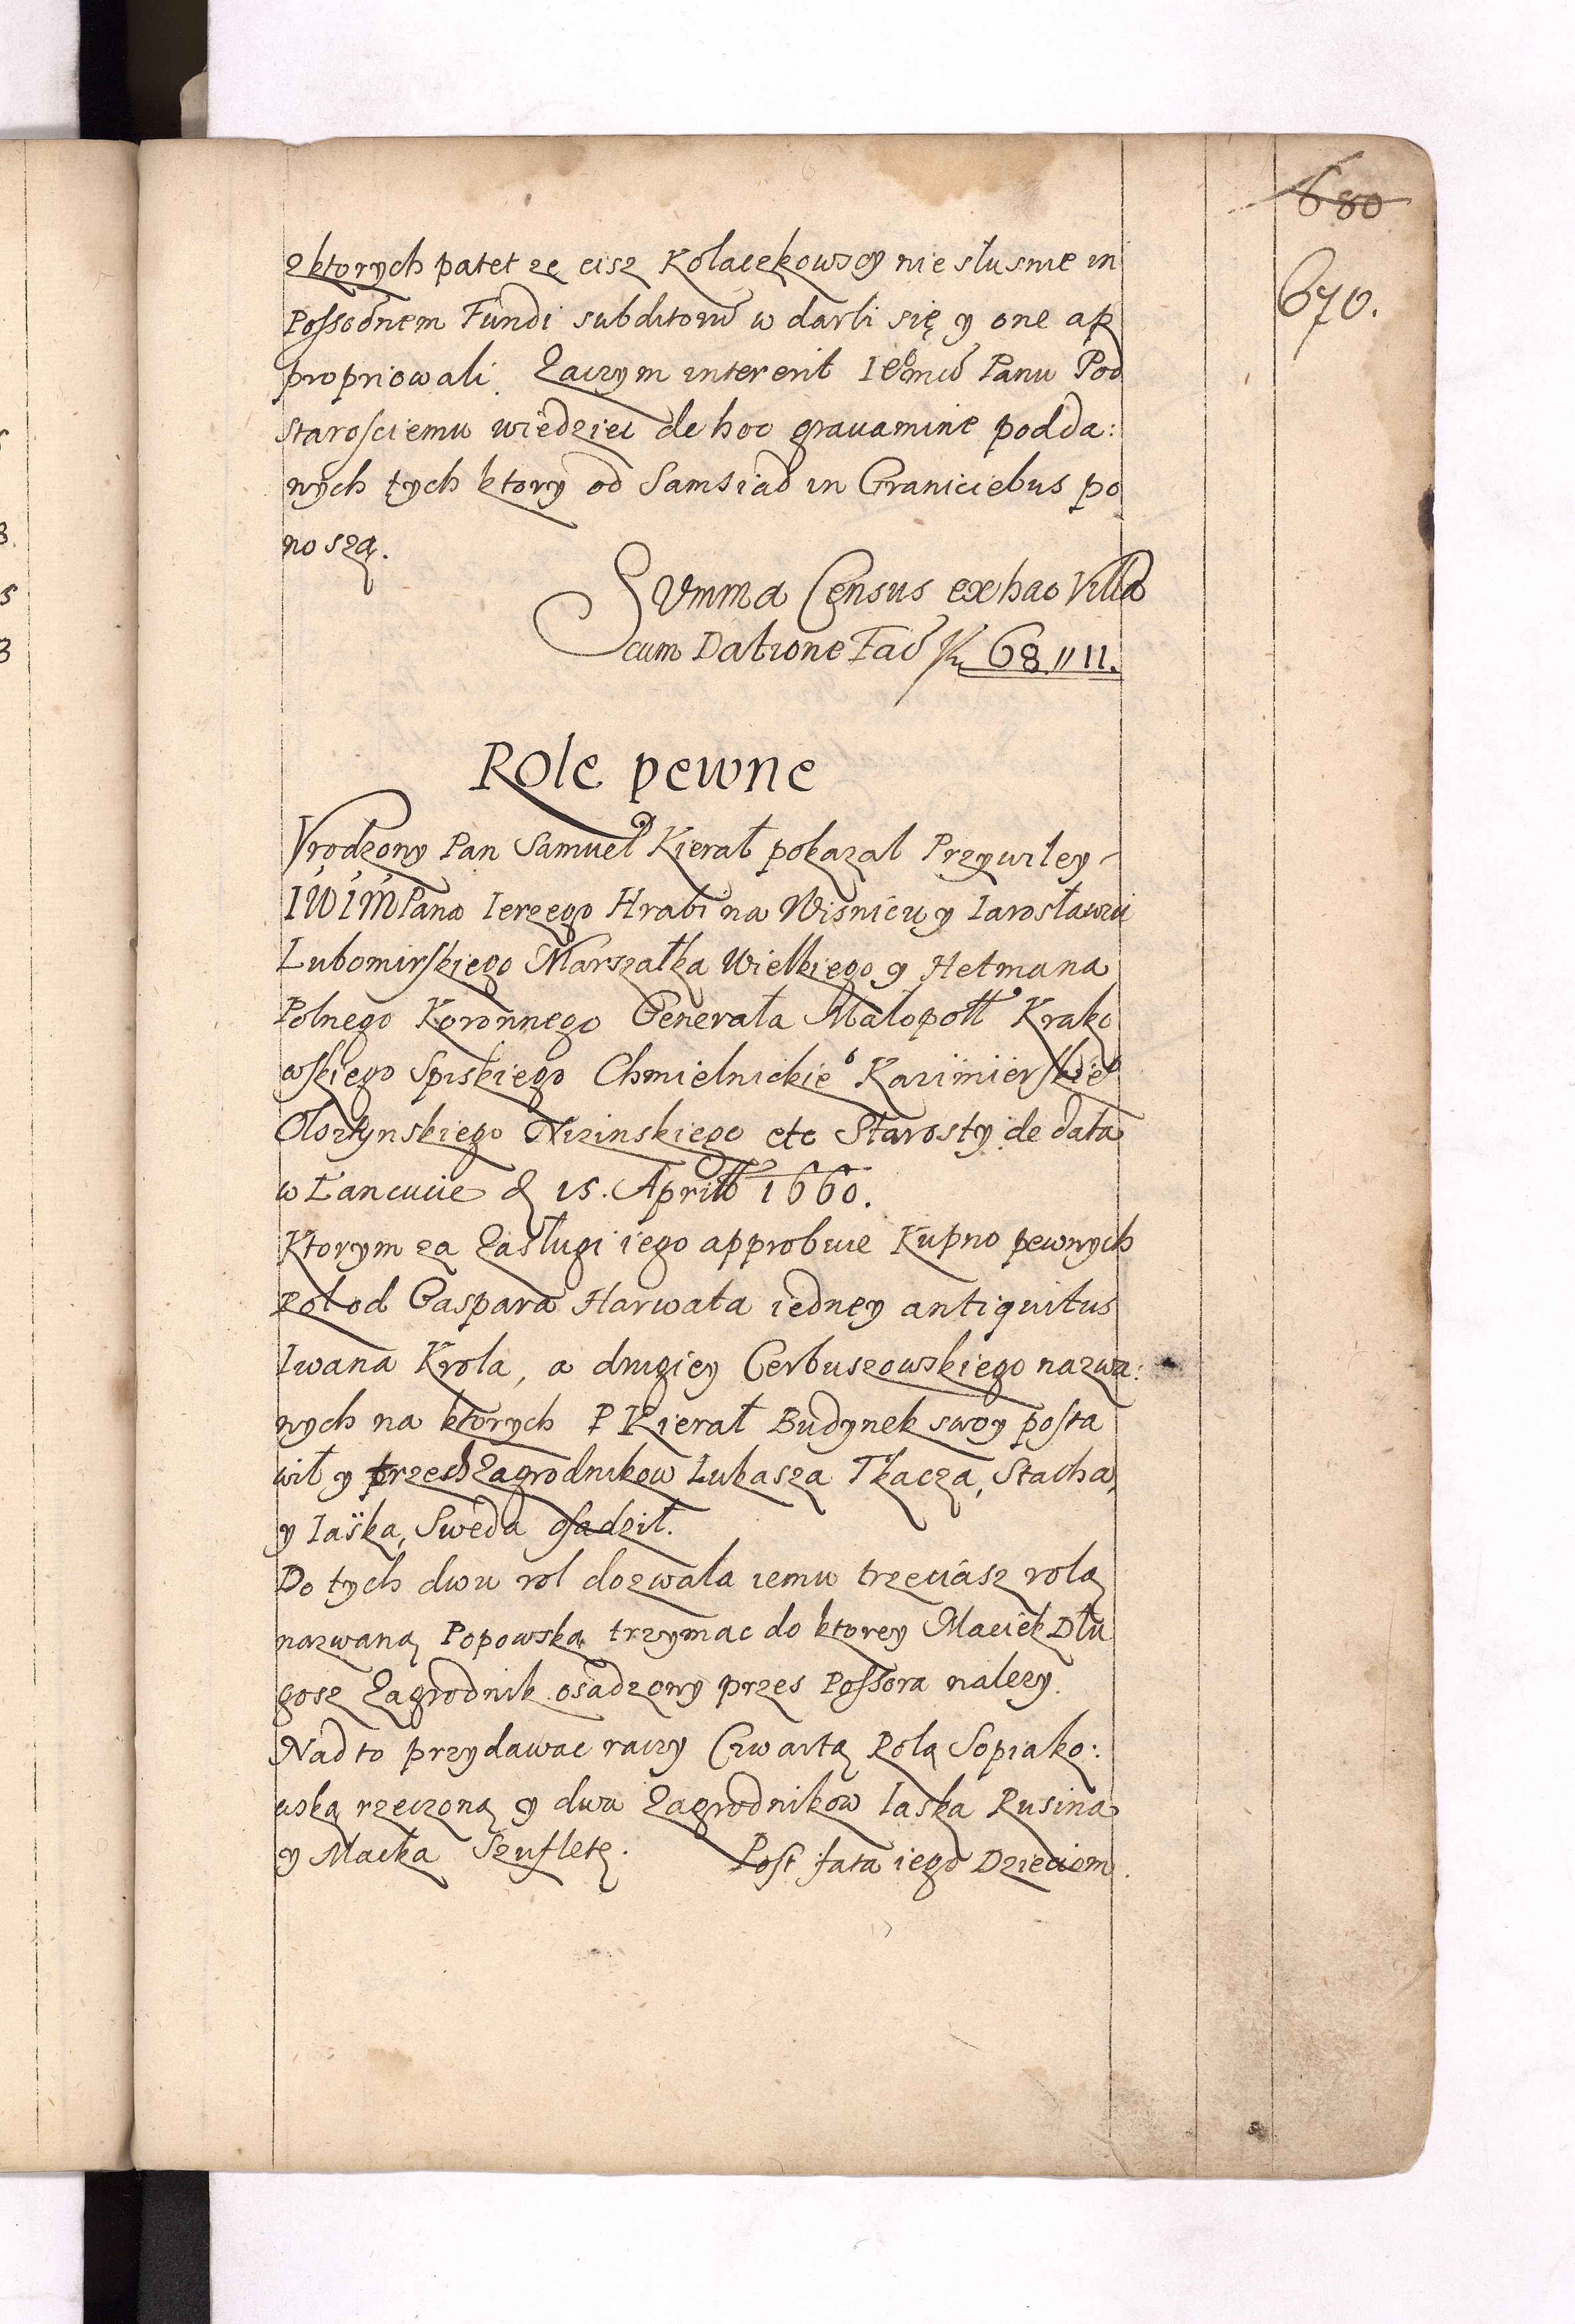 680
670.
z ktorych patet ze cisz Kołaczkowscy nie słusnie in
Possoõnem Fundi subditorũ w darli się y one ap
propriowali. Zaczym intererit Ie͠o mu Panu Pod
Starosciemu wiedziec de hoc grauamine podda:
nych tych ktory od Samsiad in Graniciebus po
noszą.
Summa Census ex hac Villa
cum Datione Fac 68 // 11.
Role pewne
Vrodzony Pan Samuel Kierał pokazal Przywiley
IWIM Pana Ierzego Hrabi na Wisniczu y Iarosławiu
Lubomirskiego Marszałka Wielkiego y Hetmana
Polnego Koronnego Generała Małopoll Krako
wskiego Spiskiego Chmielnickieo Kazimierskieo
Olsztynskiego Nizinskiego etc Starosty de data
w Łancucie d 15. Aprill 1660.
Ktorym za Zasługi iego approbuie Kupno pewnych
Rol od Gaspara Harwata iedney antiquitus
Iwana Krola, a drugiey Cerbuszowskiego nazwa:
nych na ktorych P Kierał Budynek swoy posta
wił y trzech Zagrodnikow Lukasza Tkacza, Stacha,
y Iaska, Sweda osadził.
Do tych dwu rol dozwala iemu trzeciasz rolą
nazwaną Popowską trzymac do ktorey Maciek Dłu
gosz Zagrodnik osadzony przes Possora nalezy.
Nad to przydawac raczy Czwartą Rolą Sopiako:
wską rzeczoną y dwu Zagrodnikow Iaska Rusina
y Macka Szufletę. Post fata iego Dzieciom.